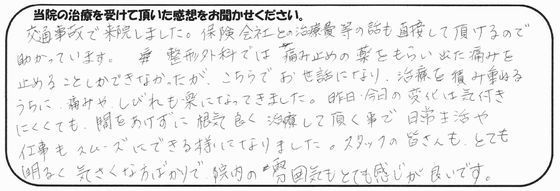 当院の治療を受けて頂いた感想をお聞かせください。
交通事故で来院しました。保険会社との治療費等の話も直接して頂けるので
助かっています。整形外科では痛み止めの薬をもらい出た痛みを
止めることしかできなかったが、こちらでお世話になり、治療を積み重ねる
うちに、痛みや、しびれも楽になってきました。昨日・今日の変化は気付き
にくくても、間をあけずに根気良く治療して頂く事で日常生活や
仕事もスムーズにできる様になりました。スタッフの皆さんも、とても
明るく気さくな方ばかりで、院内の雰囲気もとても感じが良いです。